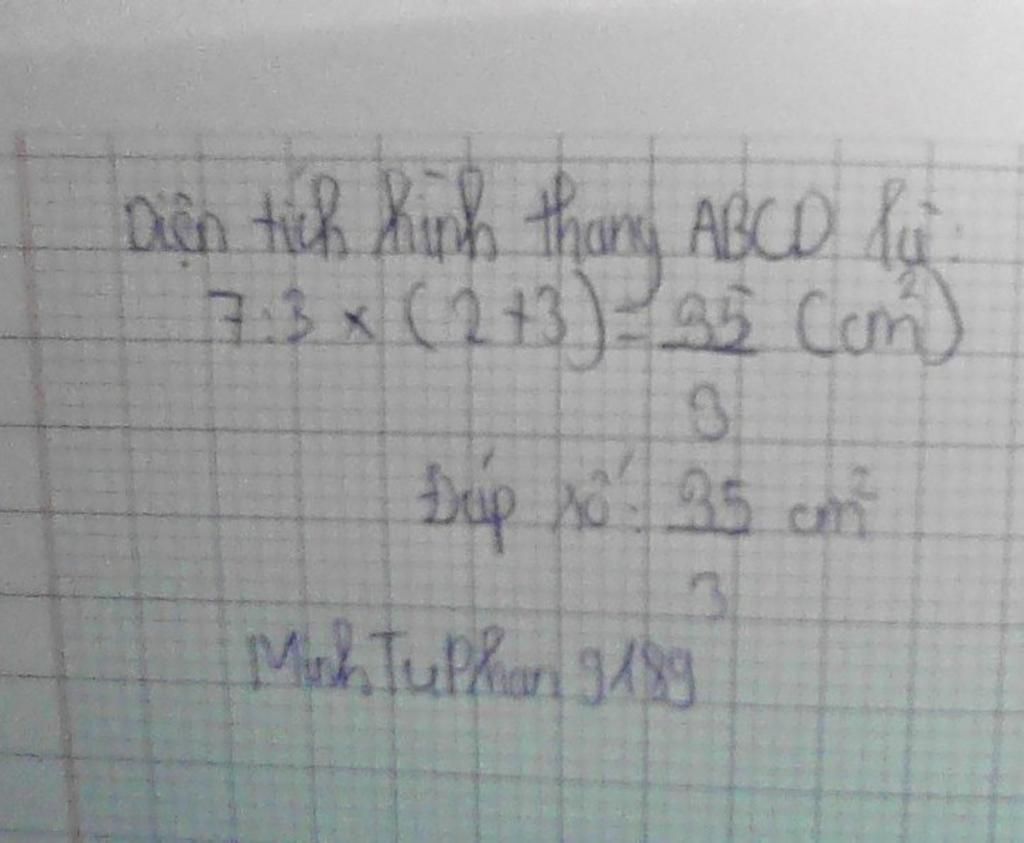 Diện tích hình thang ABCD là:
7:3 x (2+3) = 35/3 (cm²)
Đáp số: 35/3 cm²
MinhTuPhan9189